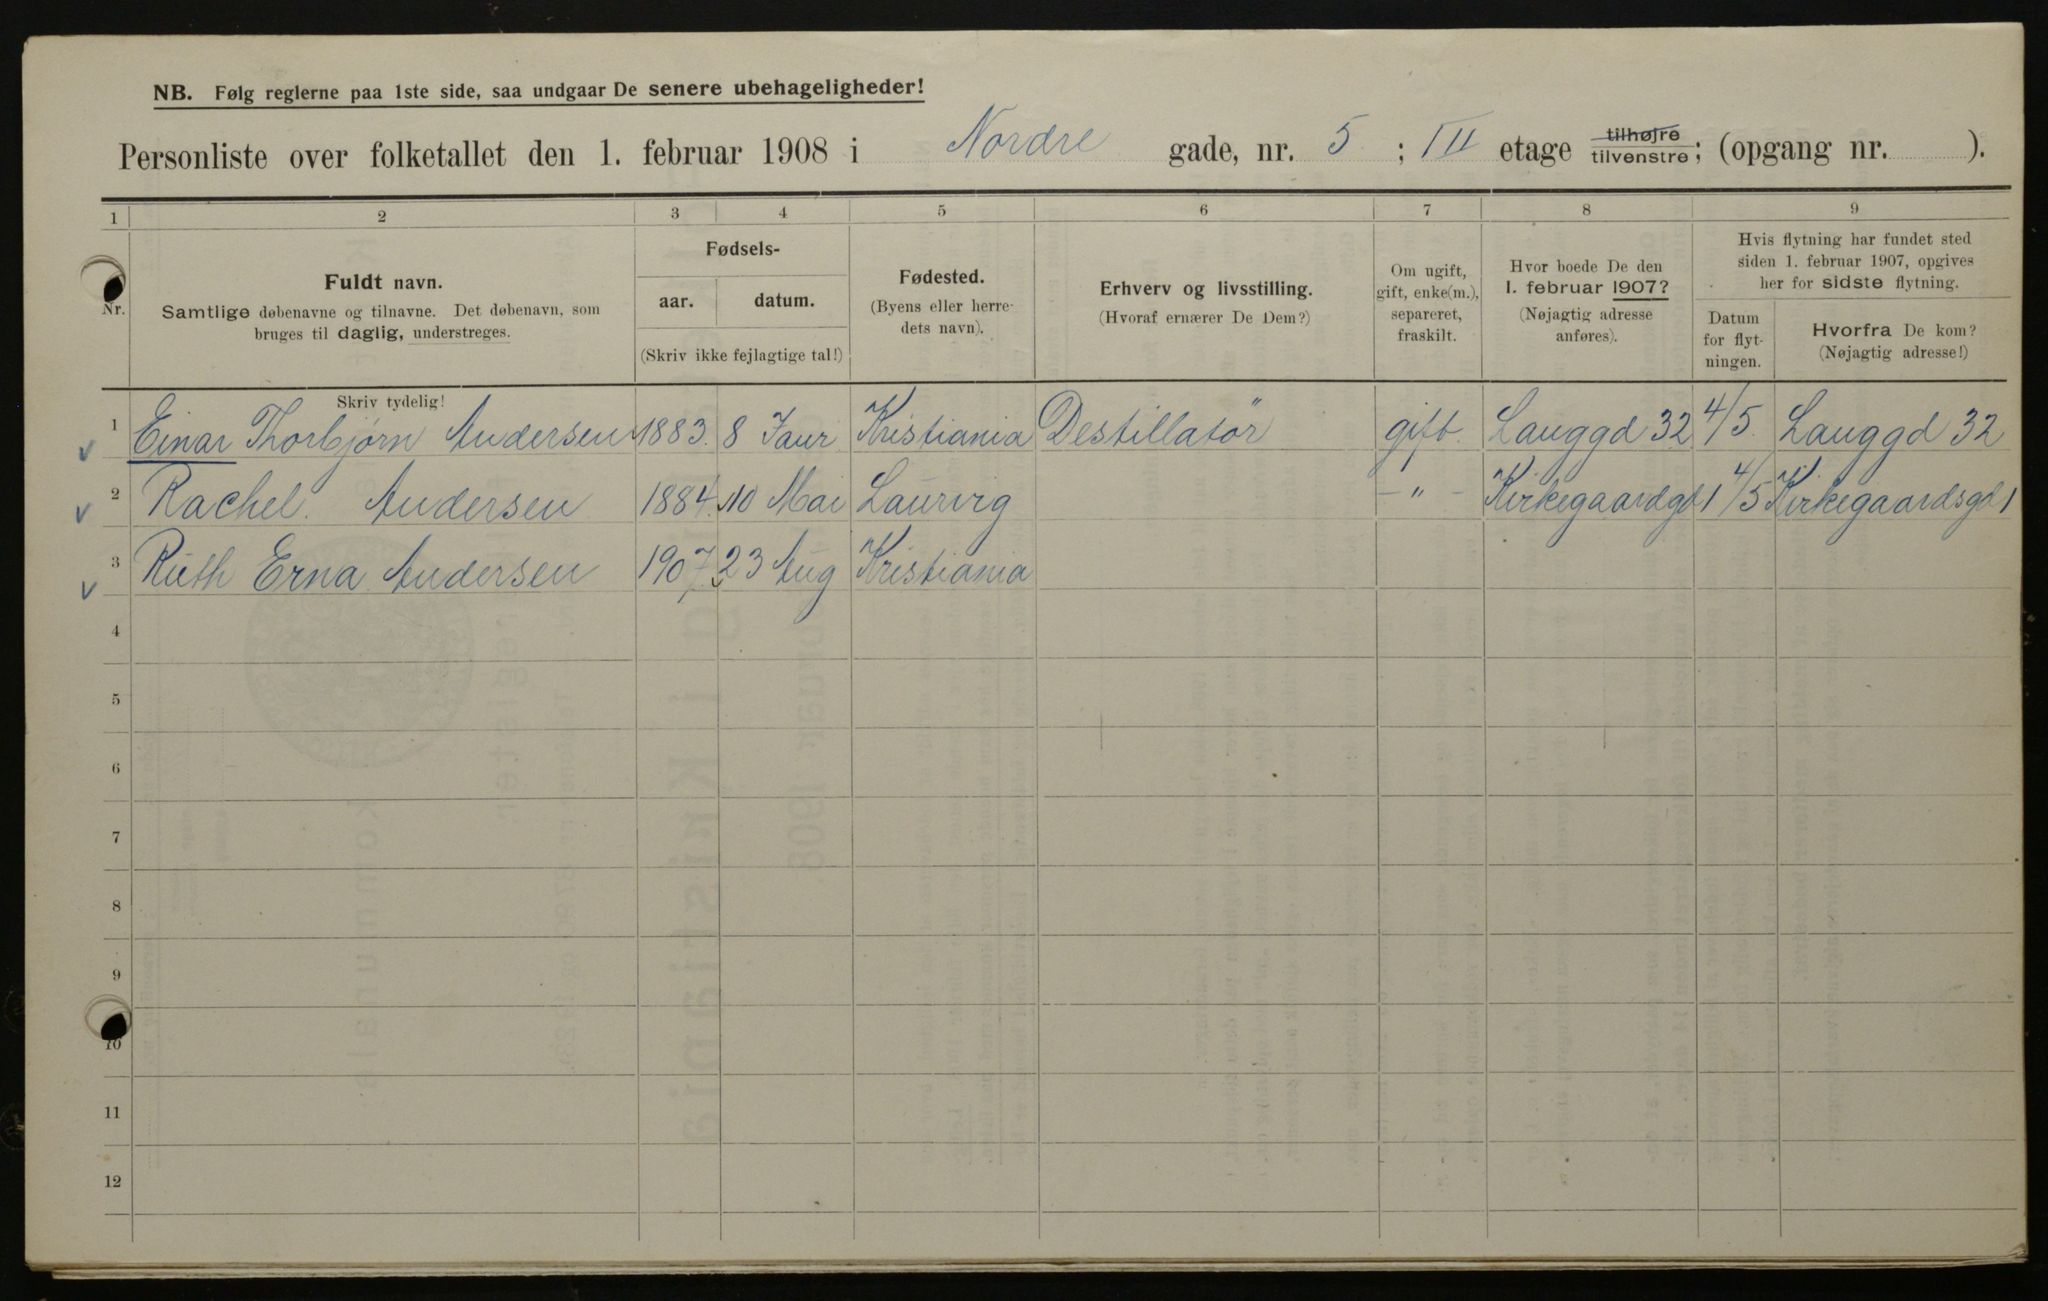 NB. Følg reglerne paa 1ste side, saa undgaar De senere ubehageligheder!
Personliste over folketallet den 1. februar 1908 i Nordre gade, nr. 5 ; III etage tilhøjre tilvenstre; (opgang nr. ).
1 2 3 4 5 6 7 8 9
Nr.
Fuldt navn.
Samtlige døbenavne og tilnavne. Det døbenavn, som
bruges til daglig, understreges.
Fødsels-
aar. datum.
(Skriv ikke fejlagtige tal!)
Fødested.
(Byens eller herre-
dets navn).
Erhverv og livsstilling.
(Hvoraf ernærer De Dem?)
Om ugift,
gift, enke(m.),
separeret,
fraskilt.
Hvor boede De den
1. februar 1907?
(Nøjagtig adresse
anføres).
Hvis flytning har fundet sted
siden 1. februar 1907, opgives
her for sidste flytning.
Datum
for flyt-
ningen.
Hvorfra De kom?
(Nøjagtig adresse!)
Skriv tydelig!
1 Einar Thorbjørn Andersen 1883. 8 Jaur Kristiania Destillatör gift. Lauggd 32 4/5. Lauggd 32
2 Rachel. Andersen 1884. 10 Mai Laurvig - " - Kirkegaardgd 1 4/5 Kirkegaardsgd 1
3 Ruth Erna Andersen 1907. 23 Aug Kristiania
4
5
6
7
8
9
10
11
12